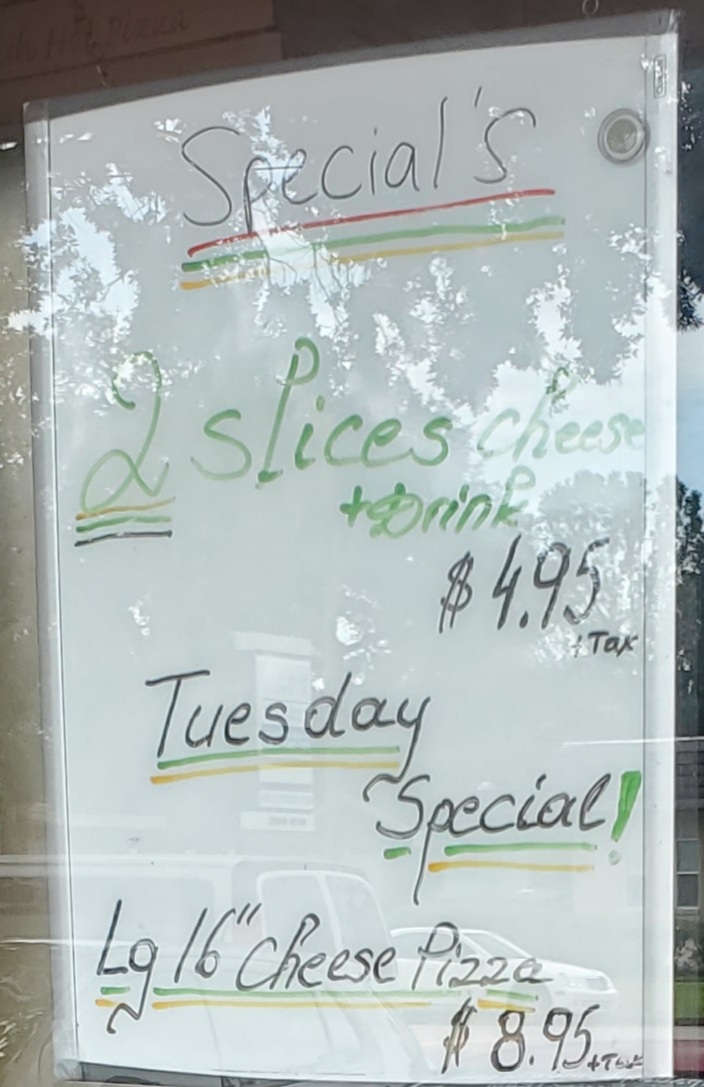 Special's
2 slices cheese
+ Drink
$ 4.95
+ Tax
Tuesday
Special!
Lg 16" Cheese Pizza
$ 8.95 + Tax